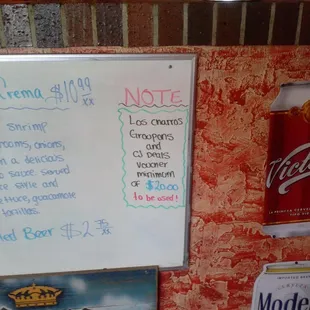 Crema $10.99/xx
Shrimp
rooms, onions,
a delicious
sauce served
rice and
guacamole
tortillas.
Beer $2.75/xx
NOTE
Los charros
Groupons
and
CJ Deals
voucher
minimum
of $20.00
to be used!
Victoria
Mode